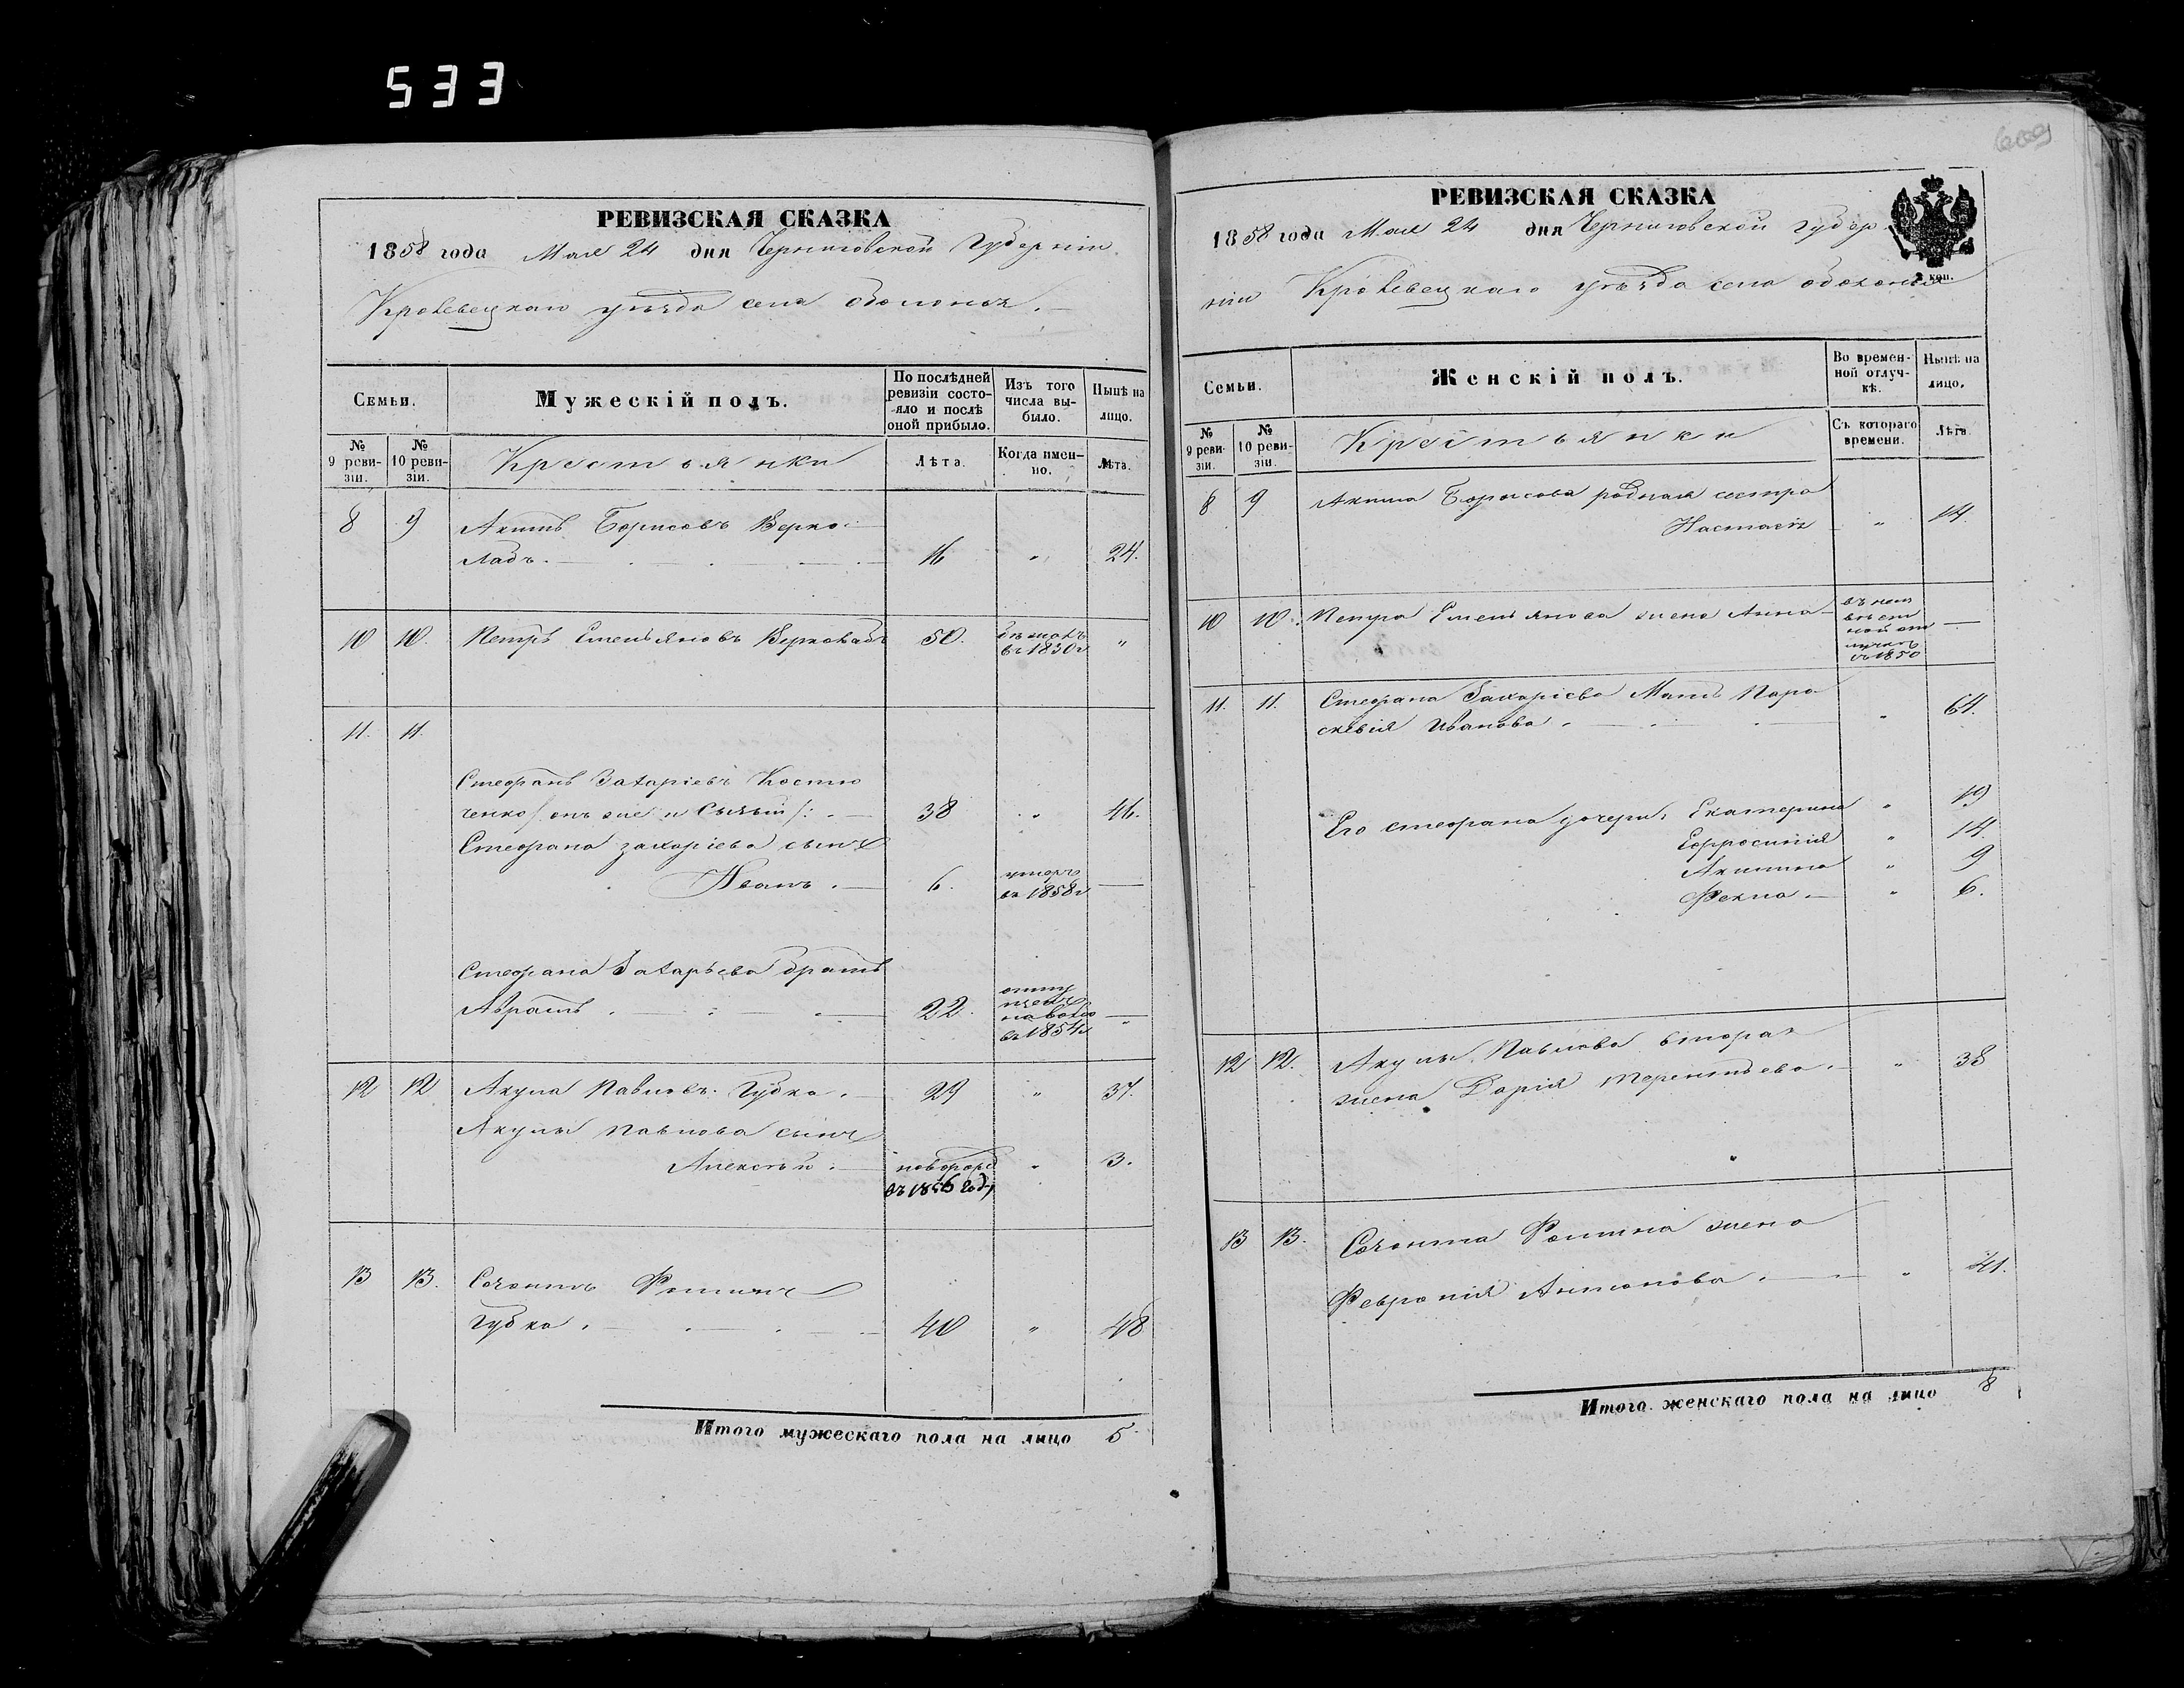 533
РЕВИЗСКАЯ СКАЗКА
1858 года Мая 24 дня Черниговской Губерніи
Кролевецкаго уѣзда села Оболонья.
Семьи.
Мужескій полъ.
По послѣдней ревизіи состояло и послѣ оной прибыло.
Изъ того числа выбыло.
Нынѣ на лицо.
№ 9 ревизіи.
№ 10 ревизіи.
Лѣта.
Когда имянно.
Лѣта.
8 9 Борисовъ Верко
ладъ. 16 " 24.
10 10. Петръ Емельяновъ Верколадъ 50. въ 1850 г "
11. 11.
Стефанъ Захаріевъ Костю
ченко 38 " 46.
Стефана Захаріева сынъ
Иванъ. 6. умеръ въ 1858 г —
Стефана Захарьева братъ
22. въ 1854 г —
12 12 Акула Павловъ Губка. 29 " 37.
Акулы Павлова сынъ
Алексѣй. новорожд въ 1856 году " 3.
13 13. Фоминъ
Губка. 40 " 48
Итого мужескаго пола на лицо 5
РЕВИЗСКАЯ СКАЗКА
1858 года Мая 24 дня Черниговской Губер
ніи Кролевецкаго уѣзда села Оболонья
2 коп.
Семьи.
Женскій полъ.
Во временной отлучкѣ.
Нынѣ на лицо.
№ 9 ревизіи.
№ 10 ревизіи.
Крестьянки
Съ котораго времени.
Лѣта.
8 9 Борисова родная сестра
Настасія " 14.
10 10. Петра Емельянова жена Анна въ 1850 —
11. 11. Стефана Захаріева Мать Пара
скевія Иванова. " 64.
Его Стефана дочери, Екатерина " 19
Ефросинія " 14.
Акилина " 9
Фекла. " 6.
12 12. Акулы Павлова вторая
жена Дарія Терентьева. " 38
13 13. Фомина жена
Февронія Антонова. " 41.
Итого женскаго пола на лицо 8